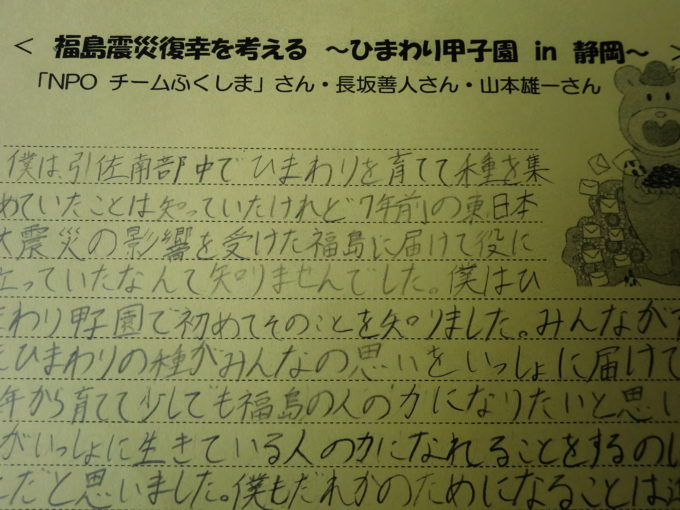 < 福島震災復幸を考える ～ひまわり甲子園 in 静岡～ >
「NPO チームふくしま」さん・長坂善人さん・山本雄一さん
僕は、引佐南部中でひまわりを育てて種を集
めていたことは知っていたけれど7年前の東日本
大震災の影響を受けた福島に届けて役に
立っていたなんて知りませんでした。僕はひ
まわり甲子園で初めてそのことを知りました。みんなが
ひまわりの種がみんなの思いをいっしょに届けて
年から育てて少しでも福島の人の力になりたいと思い
がいっしょに生きている人の力になれることをするの
だと思いました。僕もだれかのためになることは